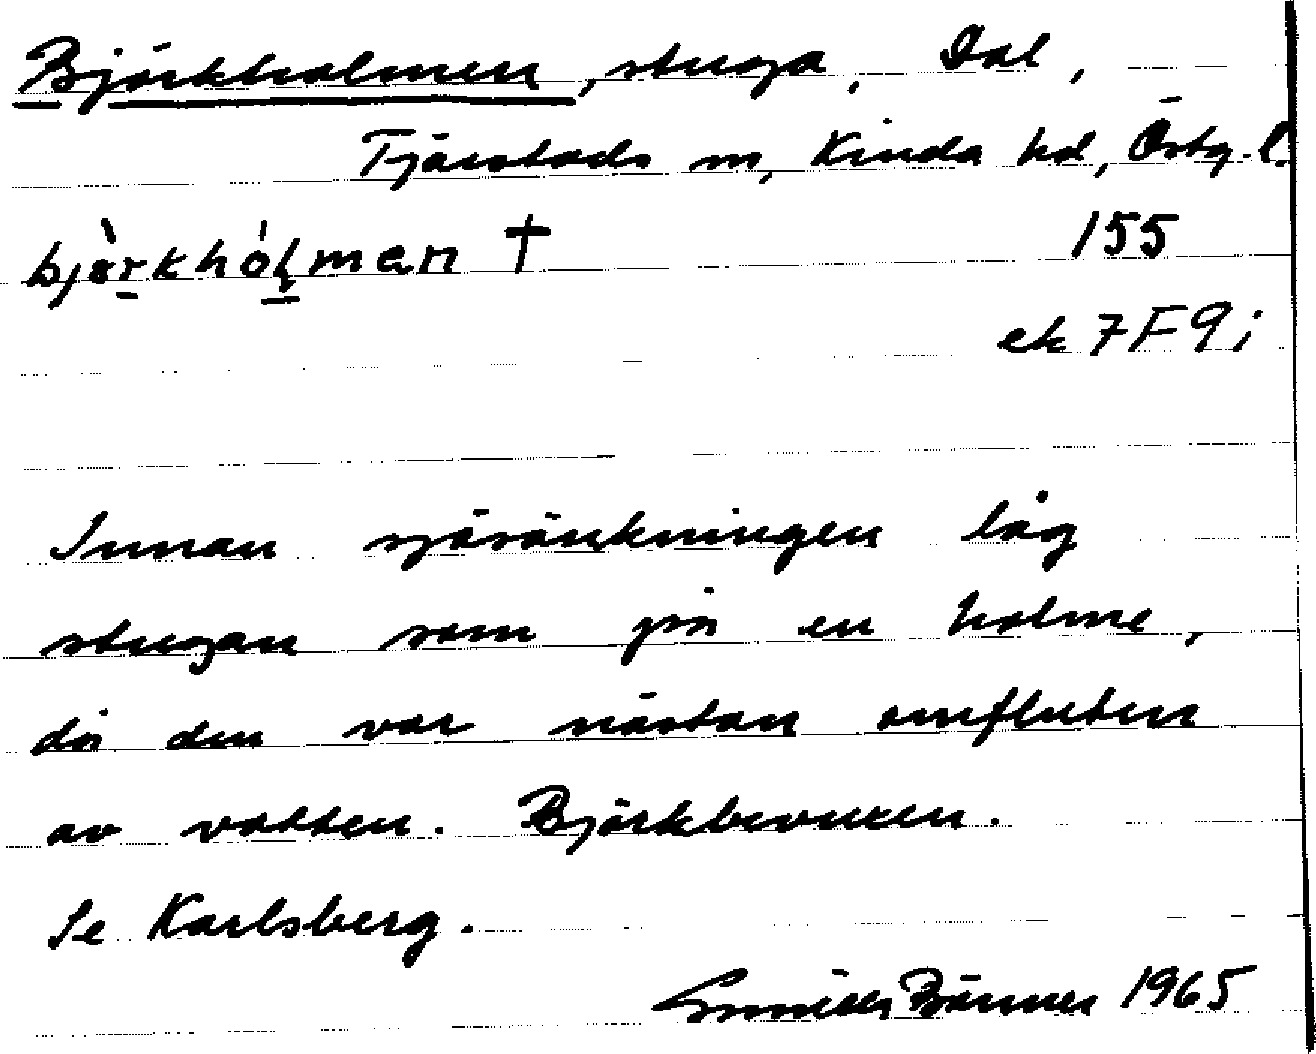 Björkholmen, stuga, Dal,
Tjärstads sn, Kinda hd, Östg. l.
bjö̀rkhól̥man † 155
ek 7F9i
Innan sjösänkningen låg
stugan som på en holme,
då den var nästan omfluten
av vatten. Björkbevuxen.
Se Karlsberg.
1965